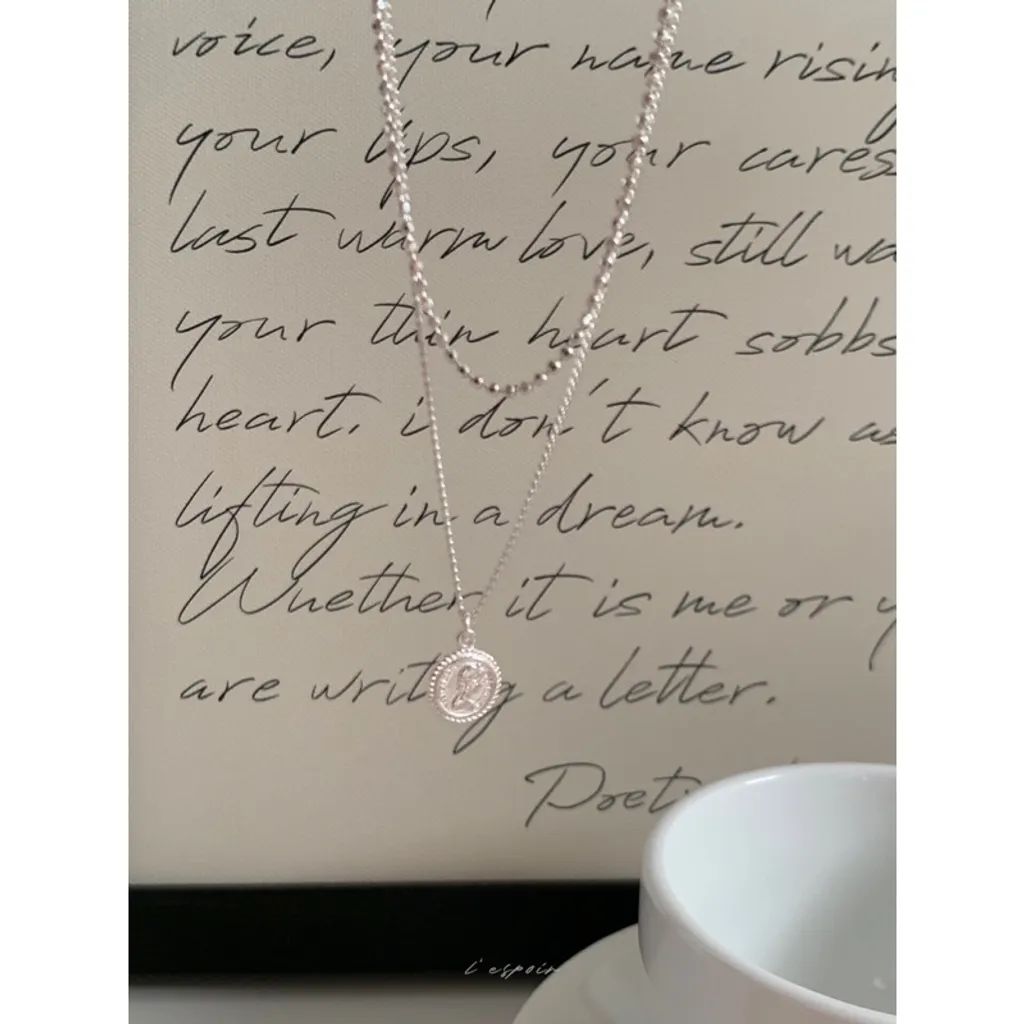 voice, your name rising
your lips, your cares
last warm love, still wa
your thin heart sobbs
heart. i don't know as
lifting in a dream.
Whether it is me or y
are writing a letter.
Poeti
l'espoir